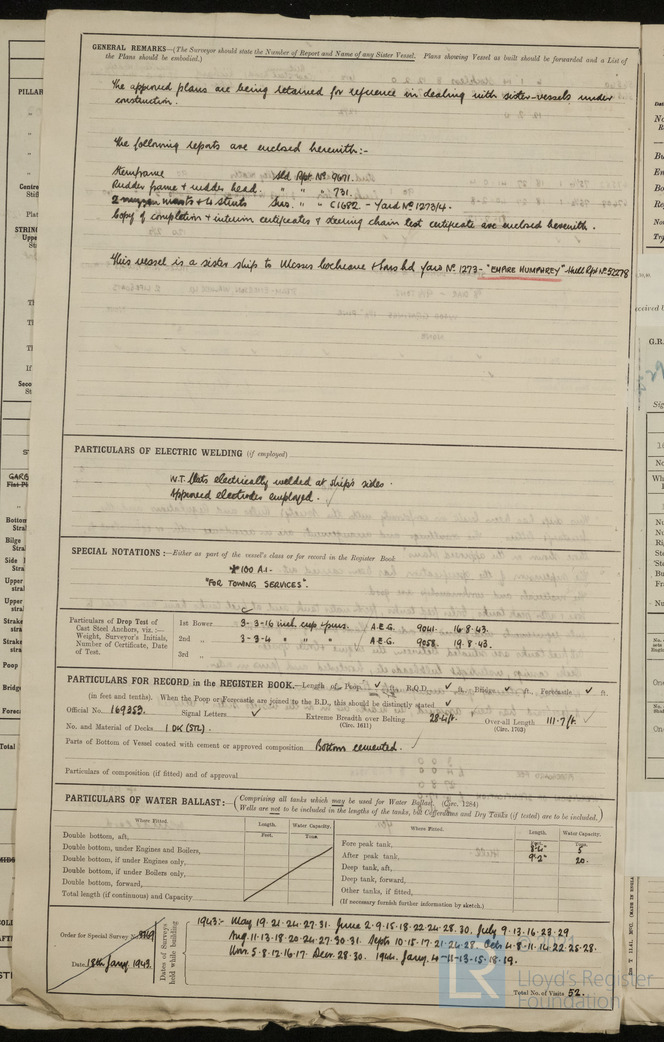 GENERAL REMARKS—(The Surveyor should state the Number of Report and Name of any Sister Vessel. Plans showing Vessel as built should be forwarded and a List of
the Plans should be embodied.)
The approved plans are being retained for reference in dealing with sister-vessels under
construction.
The following reports are enclosed herewith:-
Sternframe Mld Rpt. No 9671.
Rudder frame + rudder head. " " " 731.
2 mizzen masts + 4 struts Sus. " " C1682 - Yard No 1273/4.
Copy of completion + interim certificates & steering chain test certificate are enclosed herewith.
This vessel is a sister ship to Messrs Cochrane + Sons Ltd Yard No 1273 - "EMPIRE HUMPHREY" Hull Rpt No 52278
PARTICULARS OF ELECTRIC WELDING (if employed)
W.T. flats electrically welded at ship's sides.
Approved electrodes employed.
SPECIAL NOTATIONS:—Either as part of the vessel's class or for record in the Register Book
✠100 A1-
"FOR TOWING SERVICES".
Particulars of Drop Test of
Cast Steel Anchors, viz.:—
Weight, Surveyor's Initials,
Number of Certificate, Date
of Test.
1st Bower 3-3-16 incl. cup pins. A.E.G. 9041. 16.8.43.
2nd " 3-3-4 " " " A.E.G. 9058. 19.8.43.
3rd "
PARTICULARS FOR RECORD in the REGISTER BOOK.—Length of Poop ft., R.Q.D. ft., Bridge ft., Forecastle ft.
(in feet and tenths). When the Poop or Forecastle are joined to the B.D., this should be distinctly stated
Official No. 169353. Signal Letters Extreme Breadth over Belting 28.4ft. Over-all Length 111.7ft.
(Circ. 1611) (Circ. 1703)
No. and Material of Decks 1 DK (STL).
Parts of Bottom of Vessel coated with cement or approved composition Bottom cemented.
Particulars of composition (if fitted) and of approval
PARTICULARS OF WATER BALLAST:—(Comprising all tanks which may be used for Water Ballast. (Circ. 1284)
Wells are not to be included in the lengths of tanks, but Cofferdams and Dry Tanks (if tested) are to be included.)
Where Fitted. Length. Water Capacity. Where Fitted. Length. Water Capacity.
Feet. Tons. Feet. Tons.
Double bottom, aft, Fore peak tank, 8'-6" 5
Double bottom, under Engines and Boilers, After peak tank, 9'-2" 20.
Double bottom, if under Engines only, Deep tank, aft,
Double bottom, if under Boilers only, Deep tank, forward,
Double bottom, forward, Other tanks, if fitted,
Total length (if continuous) and Capacity (If necessary furnish further information by sketch.)
Order for Special Survey No.
Date 18th Jany. 1943.
Dates of Surveys held while building
1943:- May 19.21.24.27.31. June 2.9.15.18.22.24.28.30. July 9.13.16.23.29
Aug.11.13.18.20.24.27.30.31. Septr 10.15.17.21.24.28. Oct. 4.8.11.14.22.25.28.
Nov. 5.8.12.16.17. Decr. 28.30. 1944. Jany. 4-11-13.15.18.19.
Total No. of Visits 52.
LR
Lloyd's Register
Foundation